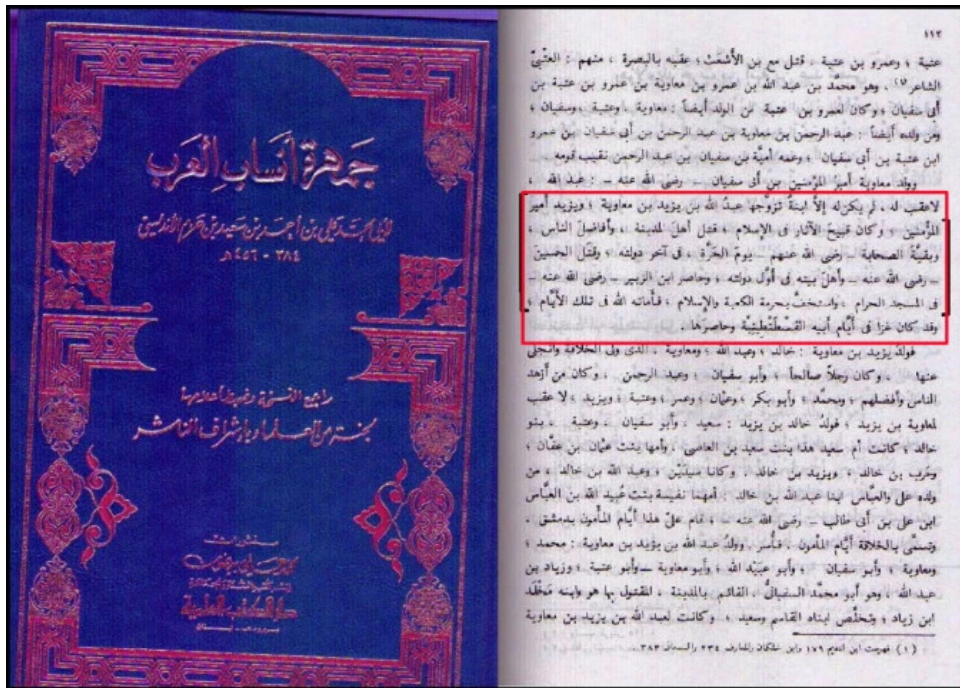 جمهرة أنساب العرب
لأبي محمد علي بن أحمد بن سعيد بن حزم الأندلسي
٣٨٤ - ٤٥٦ هـ
راجع النسخة وضبط أعلامها
لجنة من العلماء بإشراف الناشر
منشورات
دار الكتب العلمية
بيروت - لبنان
١١٢
عتبة ؛ وعمرو بن عتبة ، قتل مع بن الأشعث ؛ عقبه بالبصرة ، منهم : العتبيّ
الشاعر (١) ، وهو محمد بن عبد الله بن عمرو بن معاوية بن عمرو بن عتبة بن
أبى سفيان ؛ وكان لعمرو بن عتبة من الولد أيضاً : معاوية ، وعتبة ، وسفيان ؛
ومن ولده أيضاً : عبد الرحمن بن معاوية بن عبد الرحمن بن أبى سفيان بن عمرو
ابن عتبة بن أبى سفيان ؛ وعمه أميّة بن سفيان بن عبد الرحمن نقيب قومه
وولد معاوية أمير المؤمنين بن أبى سفيان – رضى الله عنه – : عبد الله ،
لا عقب له ، لم يكن له إلاّ ابنةٌ تزوّجها عبدُ الله بن يزيد بن معاوية ؛ ويزيد أمير
المؤمنين ؛ وكان قبيح الآثار فى الإسلام ؛ قتل أهل المدينة ، وأفاضل الناس ،
وبقيّة الصحابة – رضى الله عنهم – يومَ الحَرَّة ، فى آخر دولته ؛ وقتل الحسين
– رضى الله عنه – وأهل بيته فى أوّل دولته ؛ وحاصر ابن الزبير – رضى الله عنه –
فى المسجد الحرام ، واستخفّ بحرمة الكعبة والإسلام ؛ فأماته الله فى تلك الأيّام ؛
وقد كان غزا فى أيّام أبيه القسطنطينيّة وحاصرها .
فولد يزيد بن معاوية : خالد ؛ وعبد الله ؛ ومعاوية ، الذى ولى الخلافة وانجلى
عنها ، وكان رجلاً صالحاً ؛ وأبو سفيان ؛ وعبد الرحمن ، وكان من أزهد
الناس وأفضلهم ؛ ومحمد ؛ وأبو بكر ؛ وعثمان ؛ وعمر ؛ وعتبة ؛ ويزيد ؛ لا عقب
لمعاوية بن يزيد ؛ فولد خالد بن يزيد : سعيد ، وأبو سفيان ، وعتبة ، بنو
خالد ؛ كانت أم سعيد هذا بنت سعيد بن العاصى ، وأمها بنت عثمان بن عفّان ؛
وحرب بن خالد ، ويزيد بن خالد ، وكانا سيدَيْن ؛ وعبد الله بن خالد ، من
ولده على والعبّاس ابنا عبد الله بن خالد : أمهما نفيسة بنت عُبيد الله بن العبّاس
ابن على بن أبى طالب – رضى الله عنه – ؛ قام علىّ هذا أيّام المأمون بدمشق ،
وتسمّى بالخلافة أيّام المأمون ، فأسر . وولد عبد الله بن يزيد بن معاوية : محمد ؛
ومعاوية ؛ وأبو سفيان ؛ وأبو عبيد الله ؛ وأبو معاوية – وأبو عتبة ؛ وزياد بن
عبد الله ، وهو أبو محمّد السفيانىّ ، القائم بالمدينة ، المقتول بها هو وابنه مَخْلَد
ابن زياد ؛ وتخلّص ابناه القاسم وسعيد ؛ وكانت لعبد الله بن يزيد بن معاوية
(١) فهرست ابن النديم ١٧٦ وابن خلكان والمعارف ٢٣٤ والسمعانى ٣٨٣